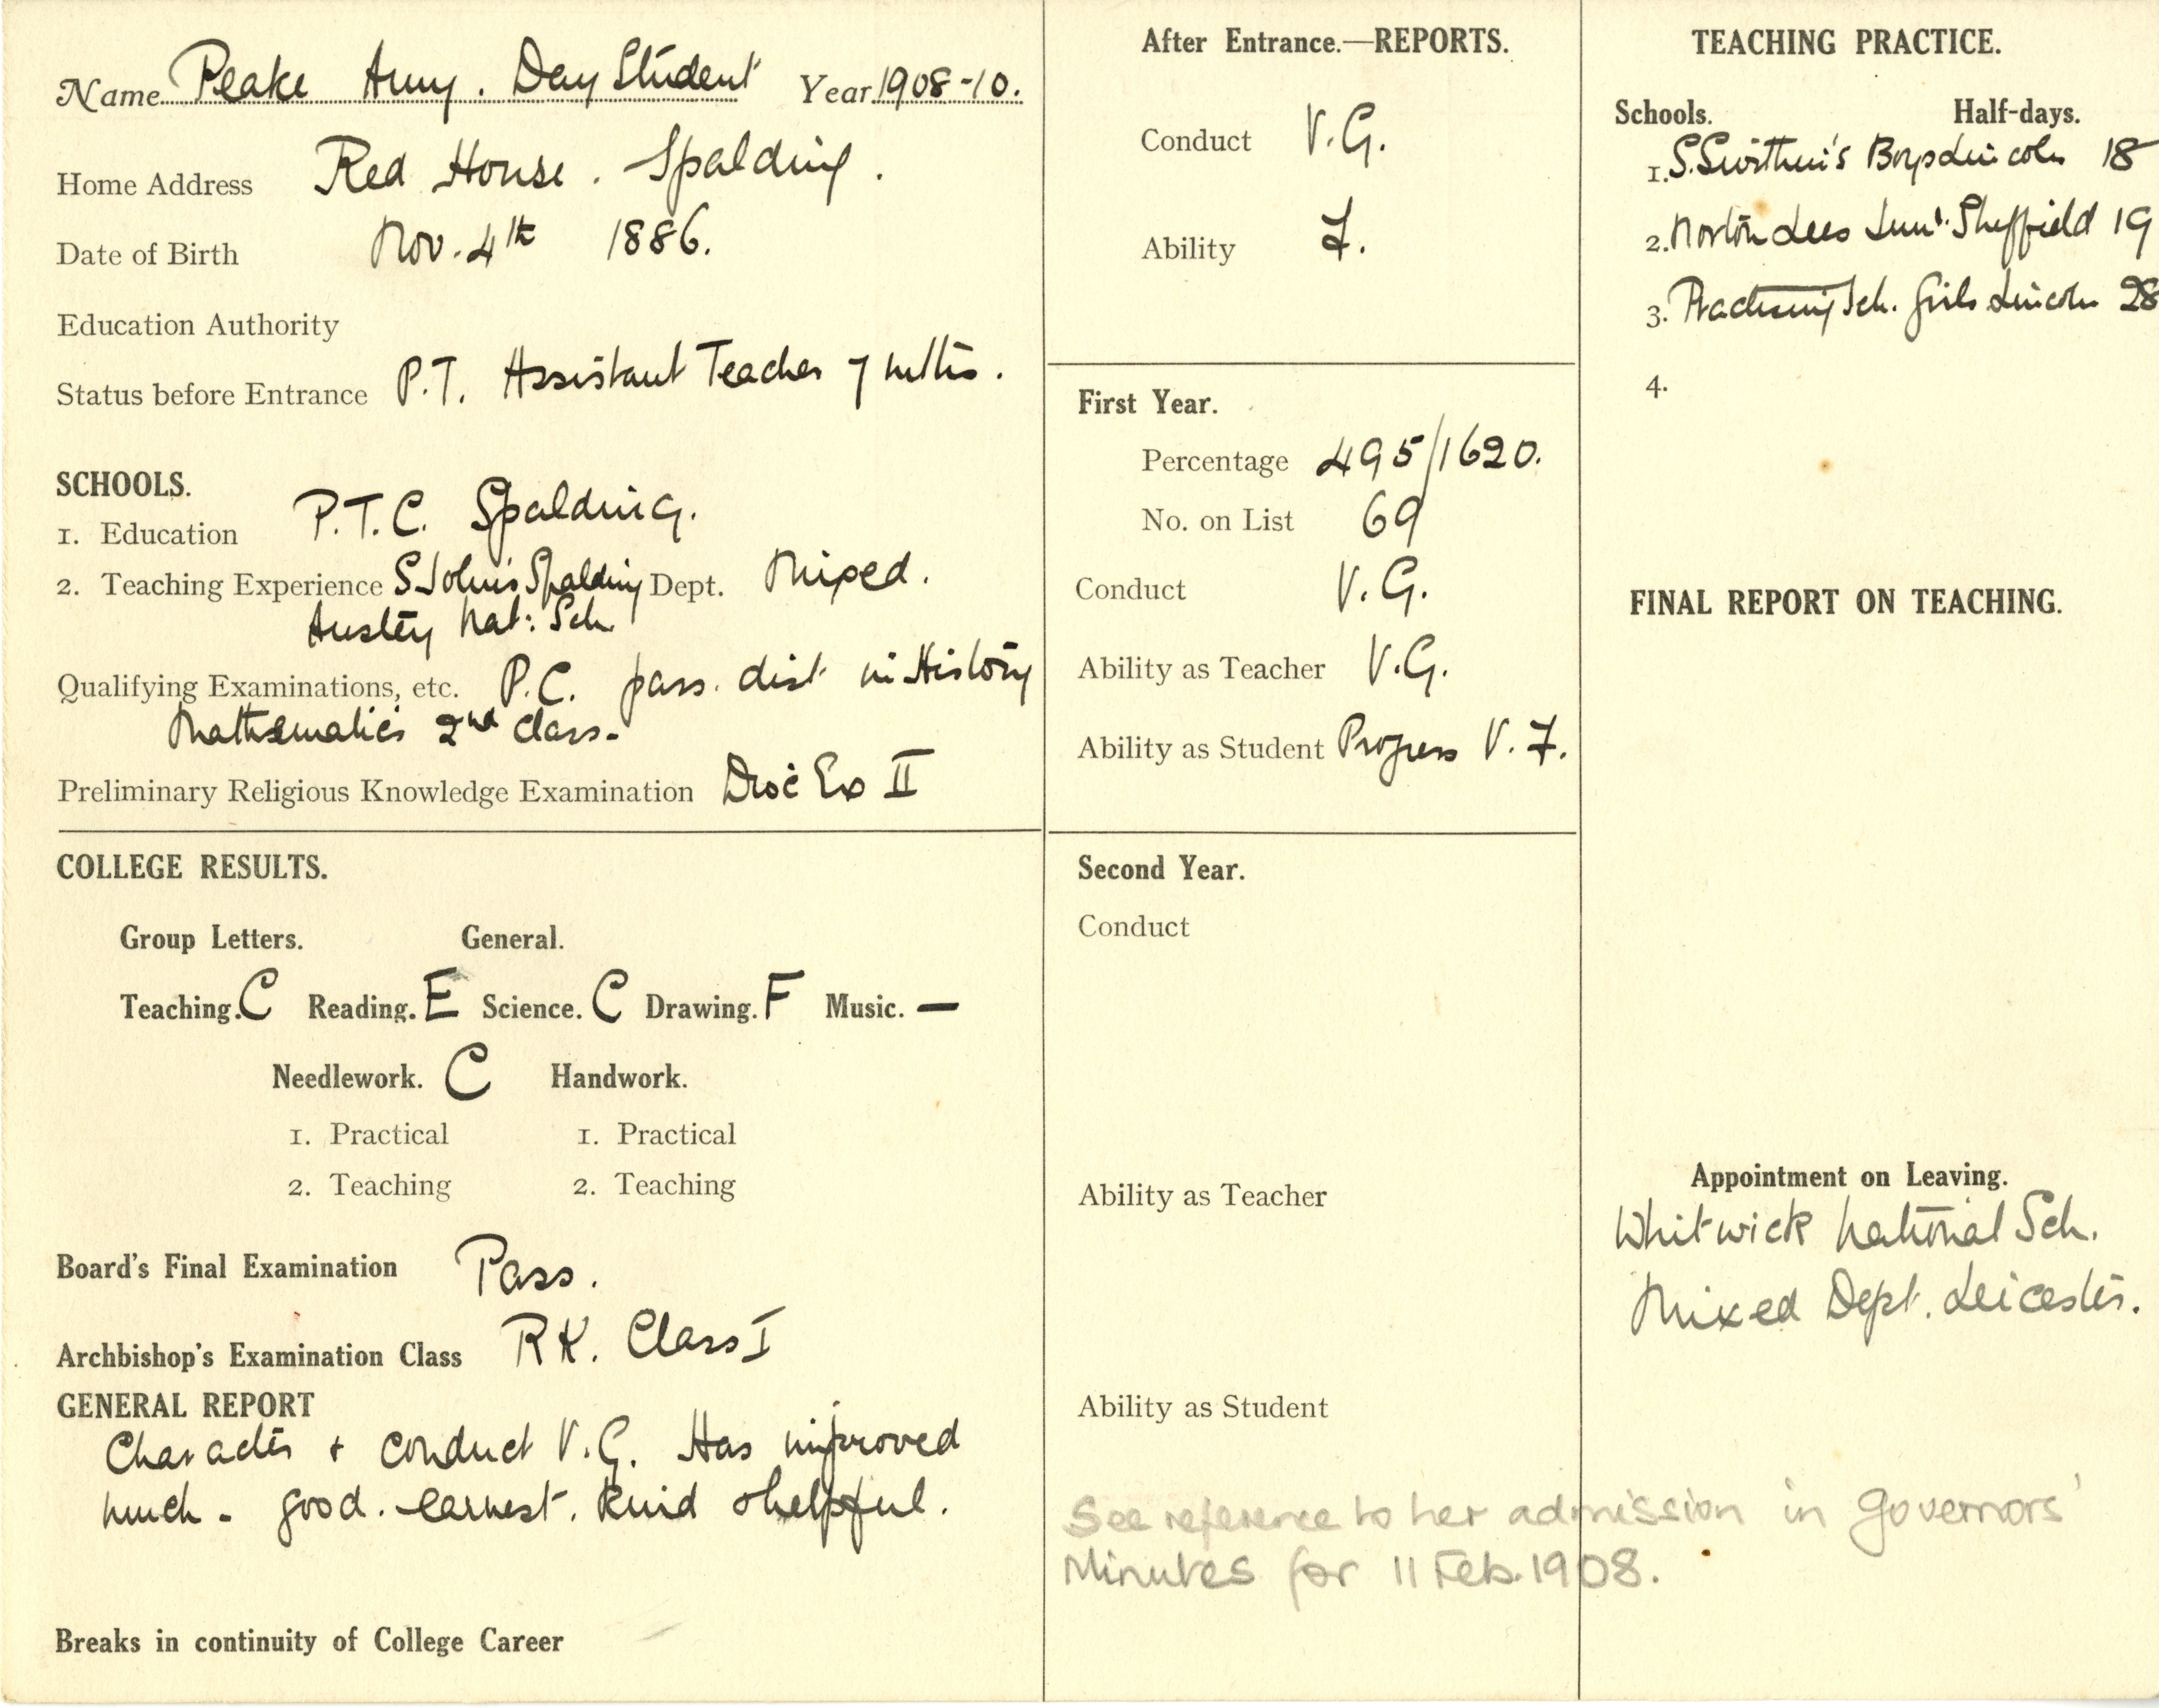 Name Peake Amy. Day Student Year 1908-10.
Home Address Red House. Spalding.
Date of Birth Nov. 4th 1886.
Education Authority
Status before Entrance P.T. Assistant Teacher 7 mths.
SCHOOLS.
1. Education P.T.C. Spalding.
2. Teaching Experience S. John's Spalding Dept. Mixed.
Anstey Nat: Sch.
Qualifying Examinations, etc. P.C. pass. dist. in History
Mathematics 2nd class.
Preliminary Religious Knowledge Examination Dioc Ex II
COLLEGE RESULTS.
Group Letters. General.
Teaching. C Reading. E Science. C Drawing. F Music. —
Needlework. C Handwork.
1. Practical 1. Practical
2. Teaching 2. Teaching
Board's Final Examination Pass.
Archbishop's Examination Class RK. Class I
GENERAL REPORT
Character + conduct V.G. Has improved
much - good. earnest. kind & helpful.
Breaks in continuity of College Career
After Entrance.—REPORTS.
Conduct V.G.
Ability F.
First Year.
Percentage 495/1620.
No. on List 69
Conduct V.G.
Ability as Teacher V.G.
Ability as Student Progress V.F.
Second Year.
Conduct
Ability as Teacher
Ability as Student
See reference to her admission in Governors'
Minutes for 11 Feb. 1908.
TEACHING PRACTICE.
Schools. Half-days.
1. S. Swithin's Boys Lincoln 18
2. Norton Lees Sheffield 19
3. Practising Sch. Girls Lincoln 28
4.
FINAL REPORT ON TEACHING.
Appointment on Leaving.
Whitwick National Sch.
Mixed Dept. Leicester.